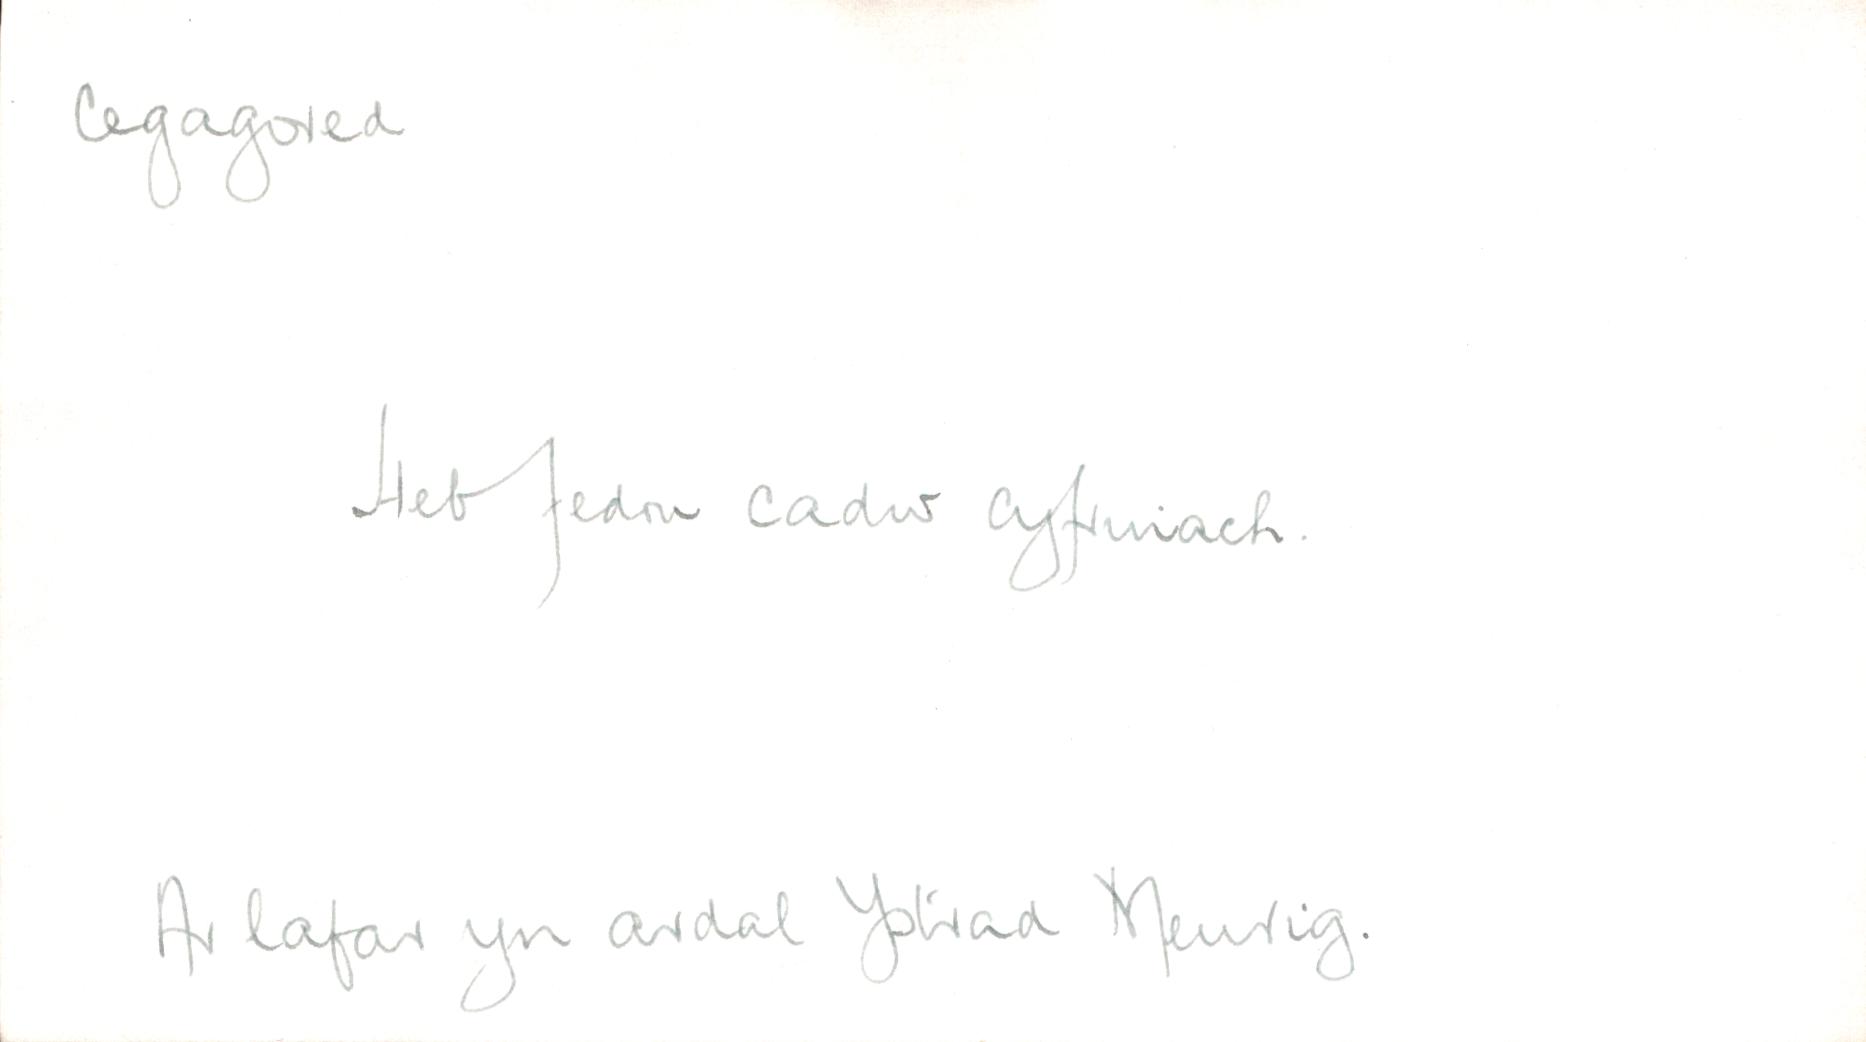 Cegagored
Heb fedru cadw cyfrinach.
Ar lafar yn ardal Ystrad Meurig.